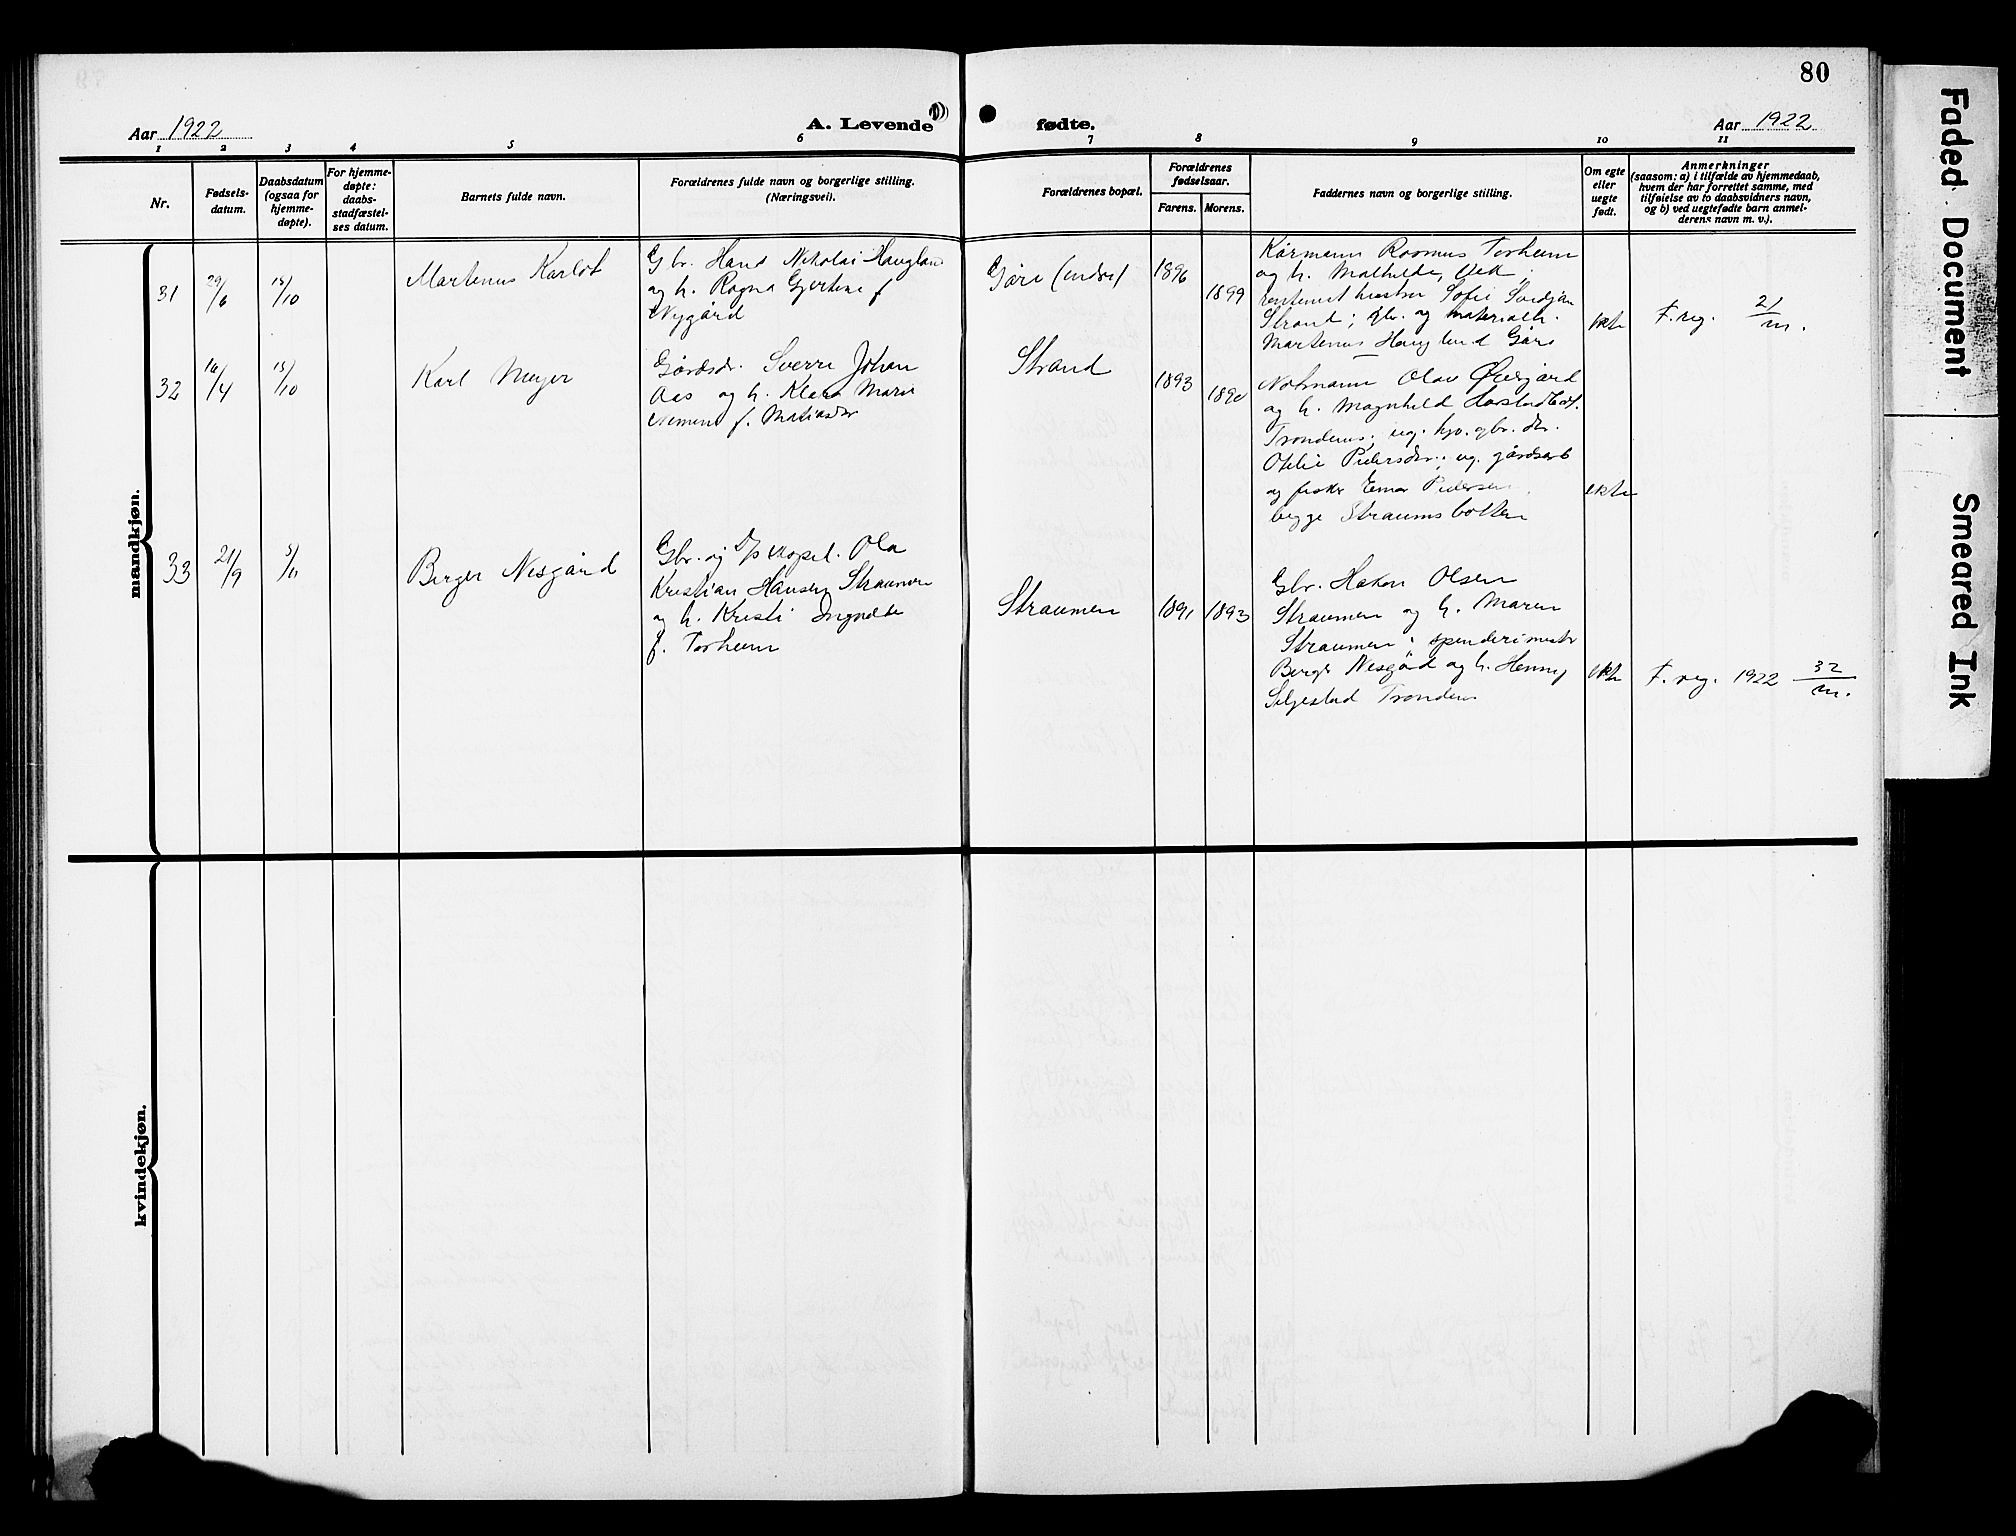 80
Aar 1922
A. Levende
fødte.
Aar 1922
1 2 3 4 5 6 7 8 9 10 11
Nr.
Fødsels-
datum.
Daabsdatum
(ogsaa for
hjemme-
døpte).
For hjemme-
døpte:
daabs-
stadfæstel-
ses datum.
Barnets fulde navn.
Forældrenes fulde navn og borgerlige stilling.
(Næringsvei).
Forældrenes bopæl.
Forældrenes
fødselsaar.
Farens. Morens.
Faddernes navn og borgerlige stilling.
Om egte
eller
uegte
født.
Anmerkninger
(saasom: a) i tilfælde av hjemmedaab,
hvem der har forrettet samme, med
tilføielse av to daabsvidners navn,
og b) ved uegtefødte barn anmel-
derens navn m. v.).
mandkjøn.
31
29/6
15/10
Martenus Karlot
Gbr. Hans Nikolai Haugland
og h. Ragna Gjertine f
Nygård
Gåre (indre)
1896
1899
Kårmann Rasmus Torheim
og h. Mathilde, Vik;
hustru Sofie
Strand; gbr. og
Martenus Haugland Gåre
ekte
F. reg. 21/m.
32
16/4
15/10
Karl Meyer
Gårdsbr. Sverre Johan
Aas og h. Klara Marie
f. Matiasdr
Strand
1893
1890
Notmann Olav
og h. Magnhild
Trondenes; ug.
Otelie Pedersdtr.; ug. gårdsarb
og fisker Einar Pedersen
begge Straumsbotten
ekte
33
21/9
5/11
Berger Nesgård
Gbr. og Ola
Kristian Hansen Straumen
og h. Kristi
f. Torheim
Straumen
1891
1893
Gbr. Håkon Olsen
Straumen og h. Maren
Straumen;
Berger Nesgård og h. Henny
Selgestad Trondenes
ekte
F. reg. 1922 32/m.
kvindekjøn.
Faded Document
Smeared Ink